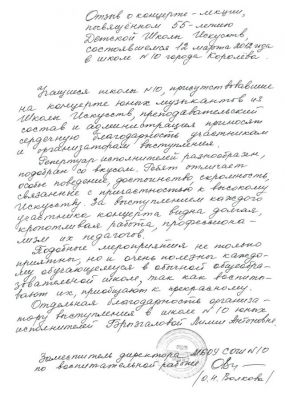 Отзыв о концерте-лекции,
посвящённом 55-летию
Детской Школы Искусств,
состоявшемся 12 марта 2012 года
в школе №10 города Королева.
Учащиеся школы №10, присутствовавшие
на концерте юных музыкантов из
Школы Искусств, преподавательский
состав и администрация приносят
сердечную благодарность участникам
и организаторам выступления.
Репертуар исполнителей разнообразен,
подобран со вкусом. Ребят отличает
особое поведение, достоинство скромность,
связанные с причастностью к высокому
Искусству. За выступлением каждого
участника концерта видна долгая,
кропотливая работа, профессиона-
лизм их педагогов.
Подобные мероприятия не только
приятны, но и очень полезны каждо-
му обучающемуся в обычной общеобра-
зовательной школе, так как воспиты-
вают их, приобщают к прекрасному.
Отдельная благодарность организа-
тору выступления в школе №10 юных
исполнителей Лилии Антоновне
Заместитель директора МБОУ СОШ №10
по воспитательной работе
/О.Н. Волкова/